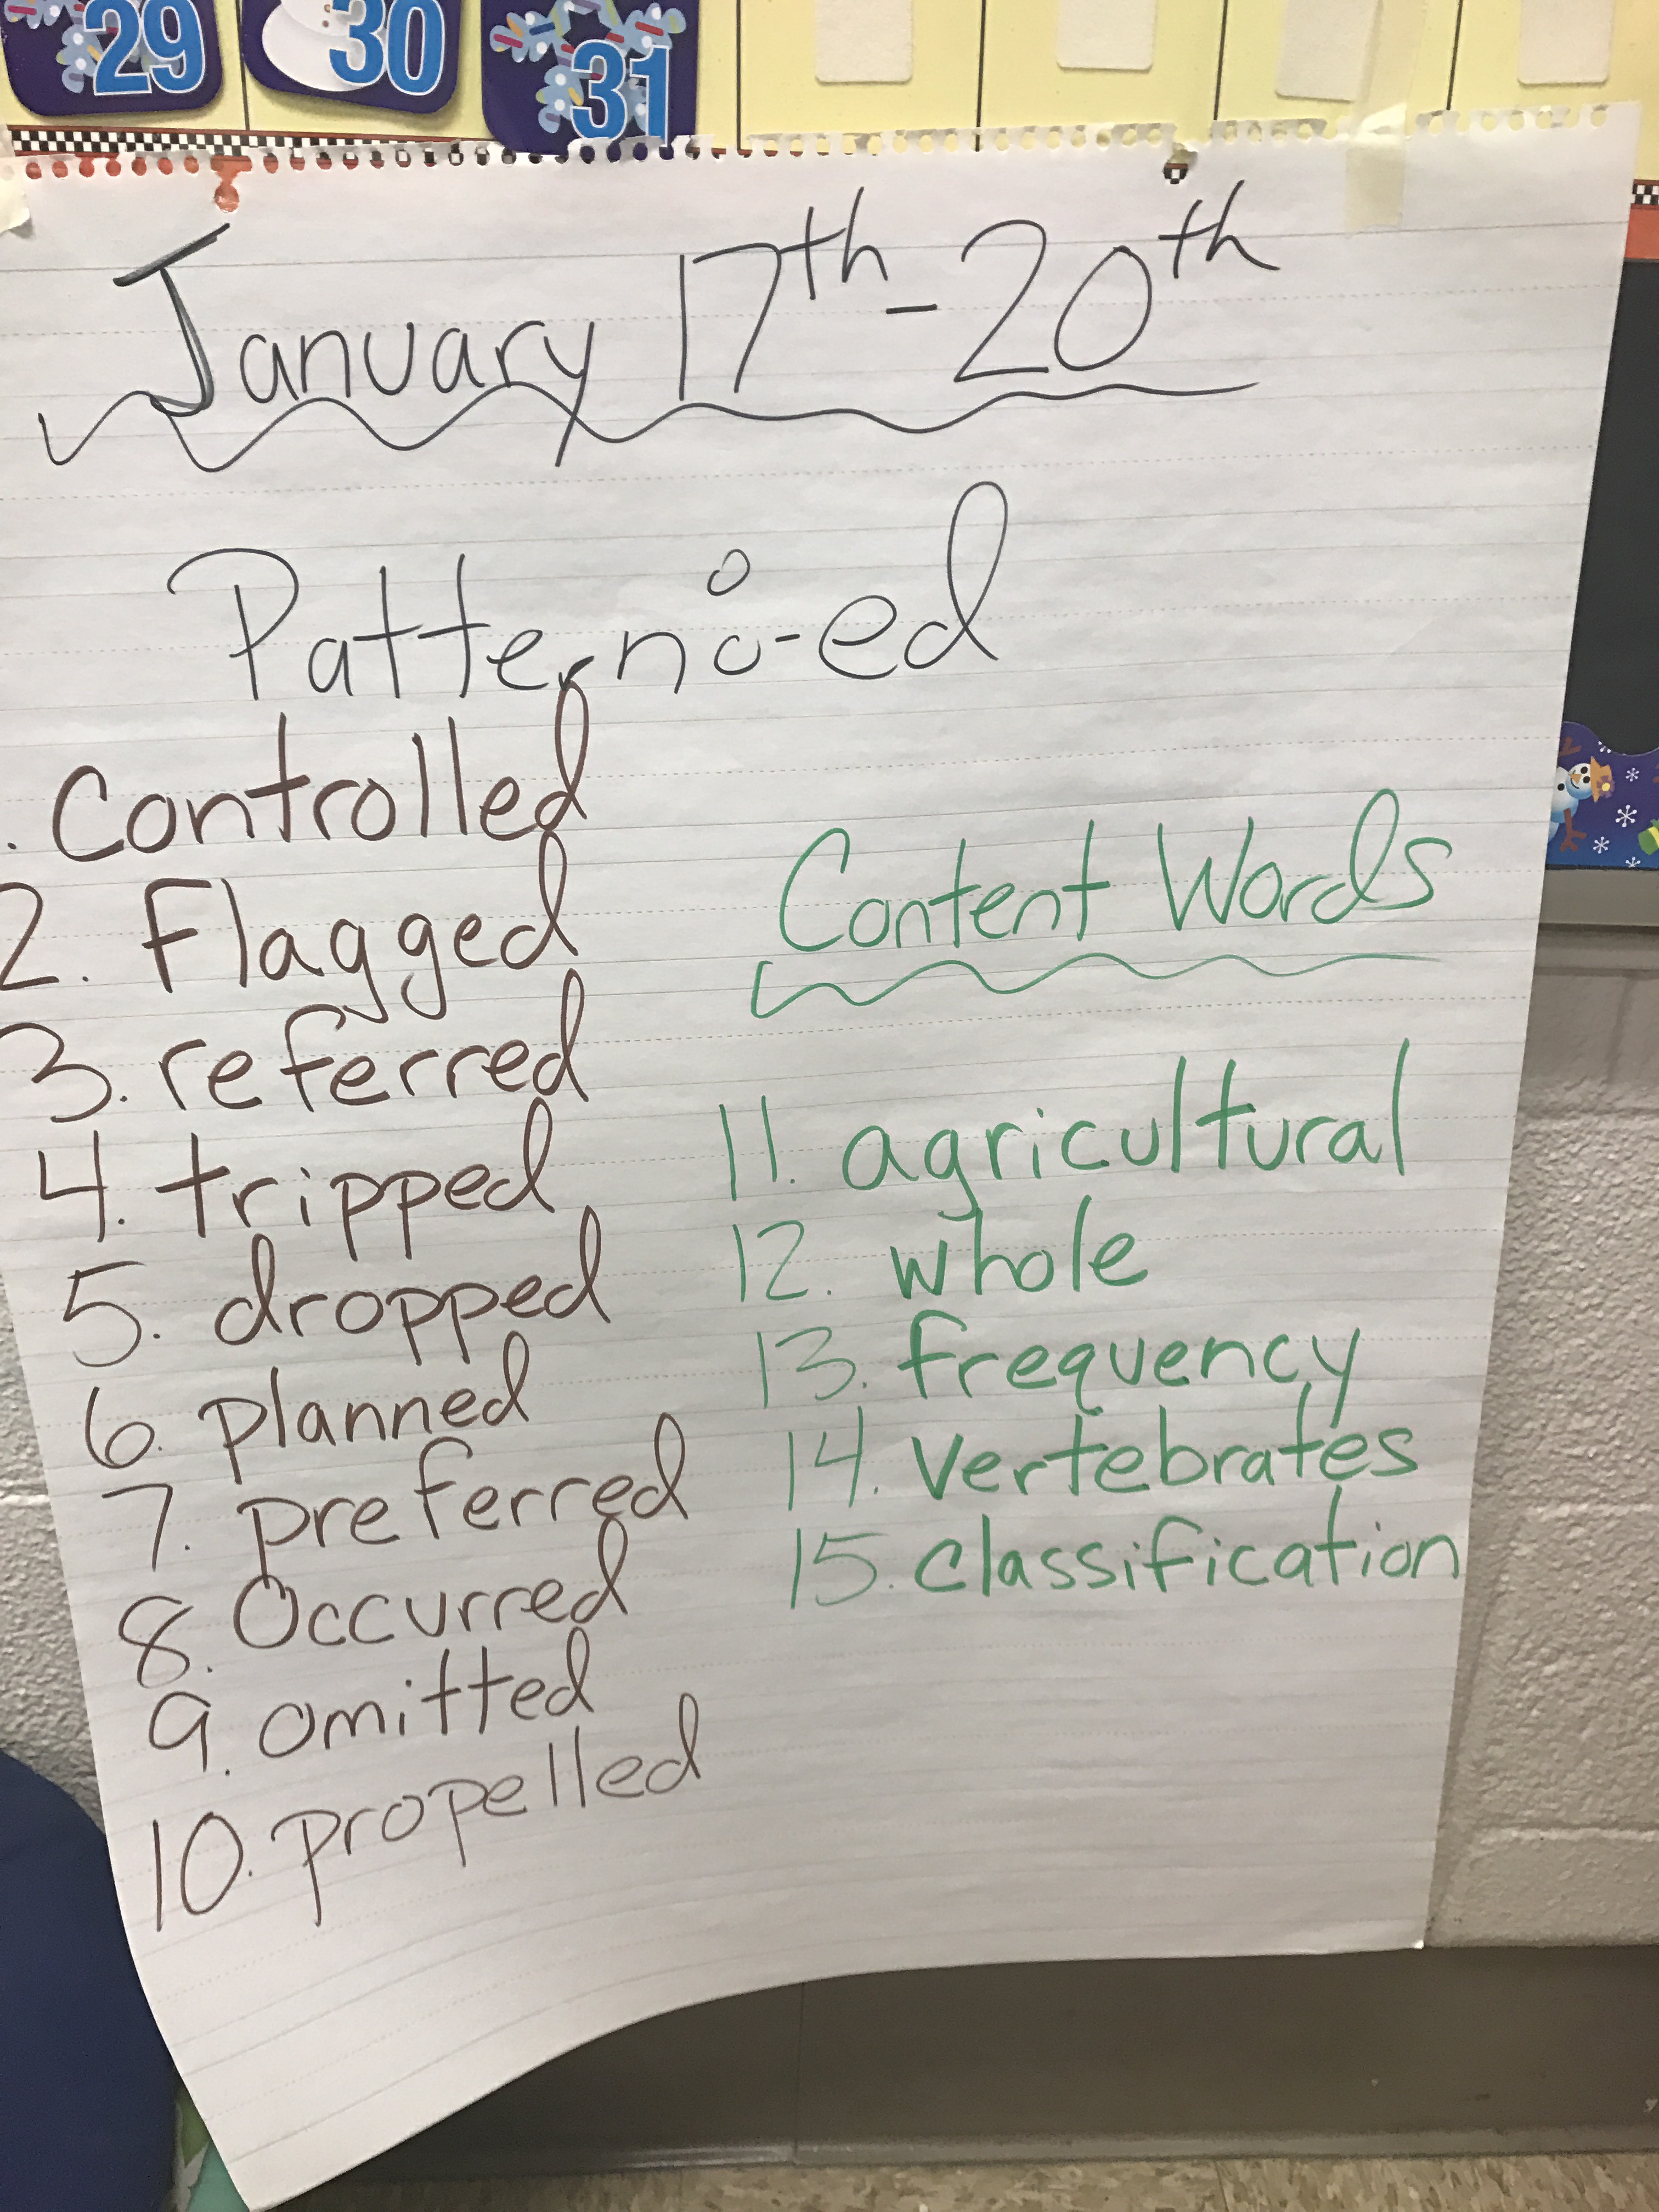 29 30 31
January 17th-20th
Pattern:-ed
. Controlled
2. Flagged
3. referred
4. tripped
5. dropped
6. planned
7. preferred
8. Occurred
9. omitted
10. propelled
Content Words
11. agricultural
12. whole
13. frequency
14. Vertebrates
15. classification